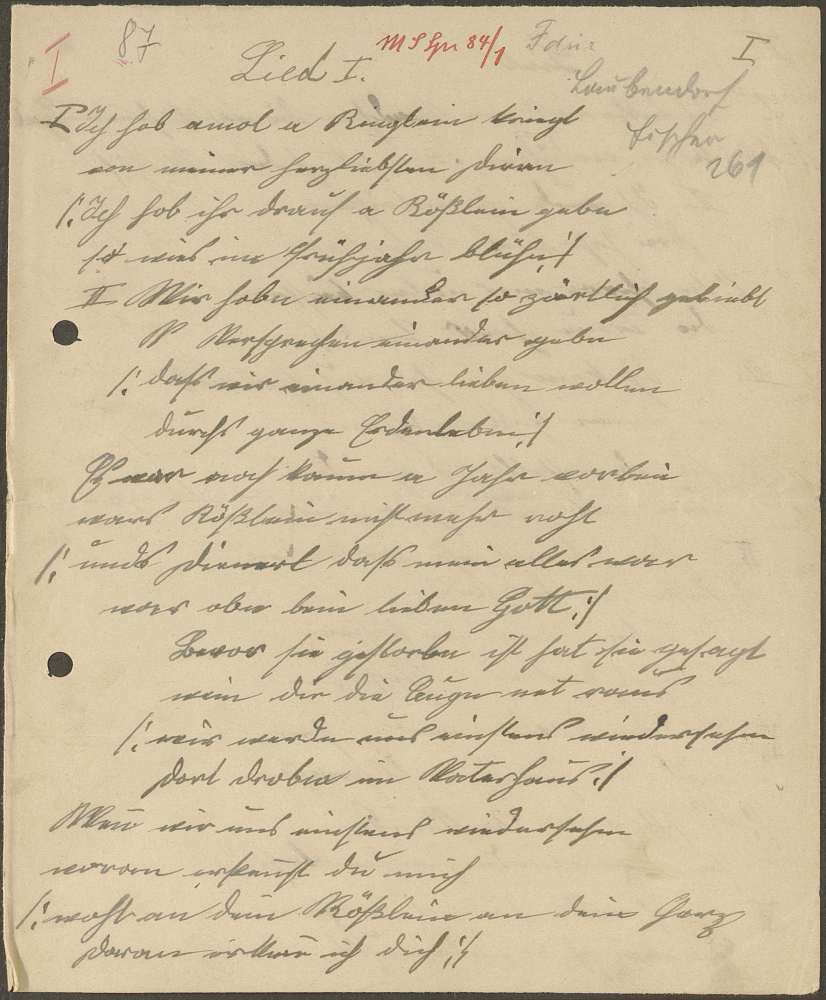 I
87
Lied I.
MS Gu 84/1
I
Laubendorf
Fischer
269
I Ich hob amol a Ringlein kriegt
von meiner herzliebsten Diran
/: Ich hob ihr drauf a Rößlein gebn
wies im Frühjahr blühn :/
II Wir hobn einander so zärtlich geliebt
Versprechen einander gebn
/: daß wir einander lieben wollen
durchs ganze Erdenlebn :/
Es war noch kaum a Jahr vorbei
wars Rößlein nicht mehr roht
/: unds Dienerl daß mein alles war
war obn bein lieben Gott. :/
Bevor sie gestorbn ist hat sie gesagt
wein dir die Augn net raus
/: wir werdn uns einstens wiedersehen
dort drobn im Vaterhaus :/
Wen̅ wir uns einstens wiedersehn
woran erken̅st du mich
/: wohl an dein Rößlein an dein Herz
daran erkenn ich dich :/